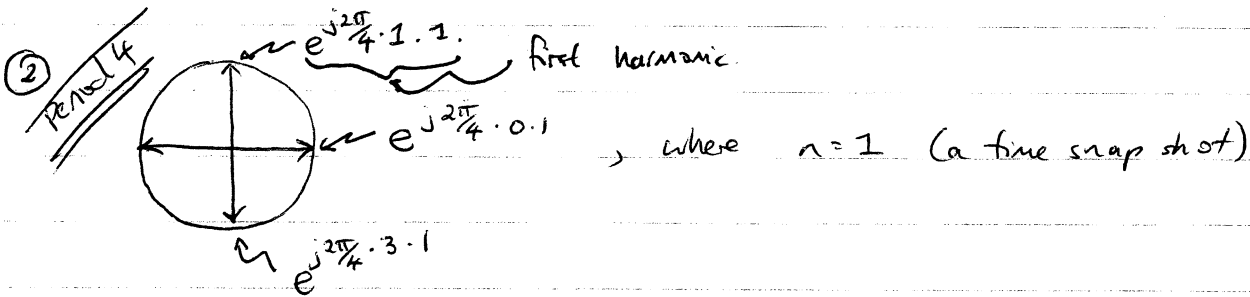 ② Period 4
e^{j2π/4·1·1}.
first harmonic.
e^{j2π/4·0·1}
, where n=1 (a time snap shot)
e^{j2π/4·3·1}